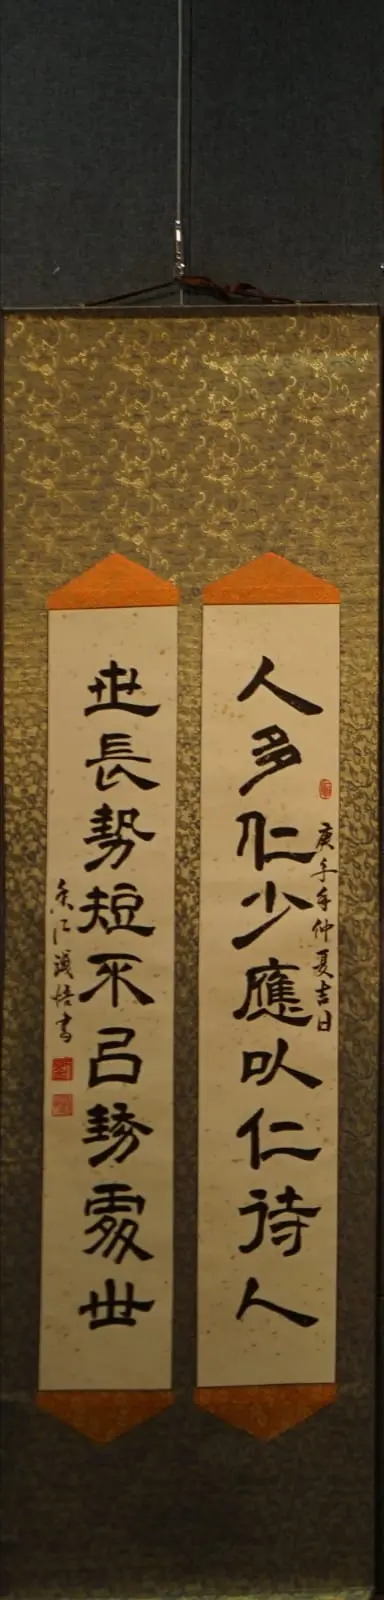 庚子年仲夏吉日
人多仁少應以仁待人
世長勢短不以勢處世
香江淺悟書